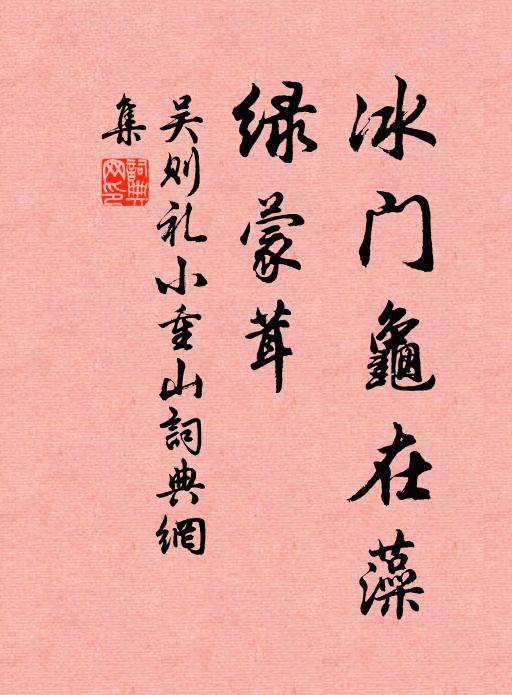 冰门龜在藻
绿蒙茸
吴则礼小重山詞典網
集
詞典网印